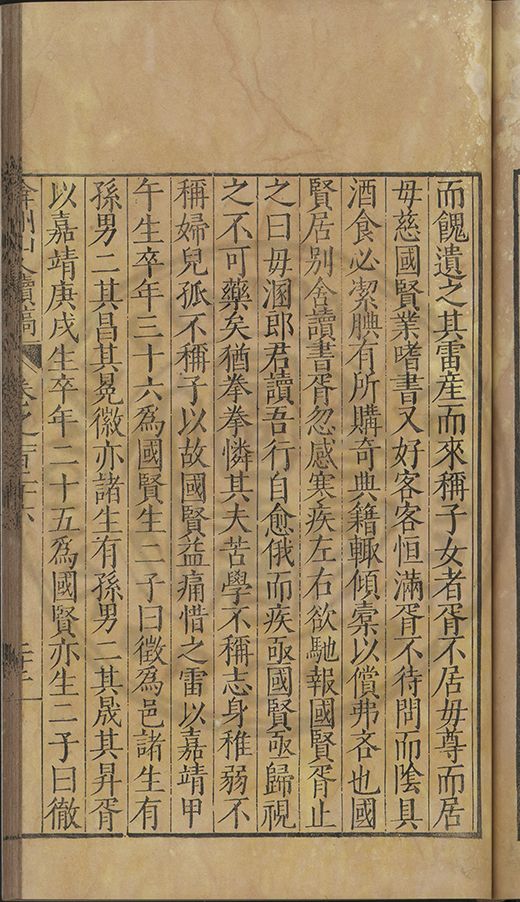 而餽遺之其雷産而來稱子女者胥不居毋尊而居
毋慈國賢業嗜書又好客客恒滿胥不待問而陰具
酒食必潔腆有所購竒典籍輙傾橐以償弗吝也國
賢居别舍讀書胥忽感寒疾左右欲馳報國賢胥止
之曰毋溷郎君讀吾行自愈俄而疾亟國賢亟歸視
之不可藥矣猶拳拳憐其夫苦學不稱志身稚弱不
稱婦兒孤不稱子以故國賢益痛惜之雷以嘉靖甲
午生卒年三十六爲國賢生二子曰徵爲邑諸生有
孫男二其昌其冕徽亦諸生有孫男二其晟其昇胥
以嘉靖庚戌生卒年二十五爲國賢亦生二子曰徹
弇州山人續稿 卷之一百二十六